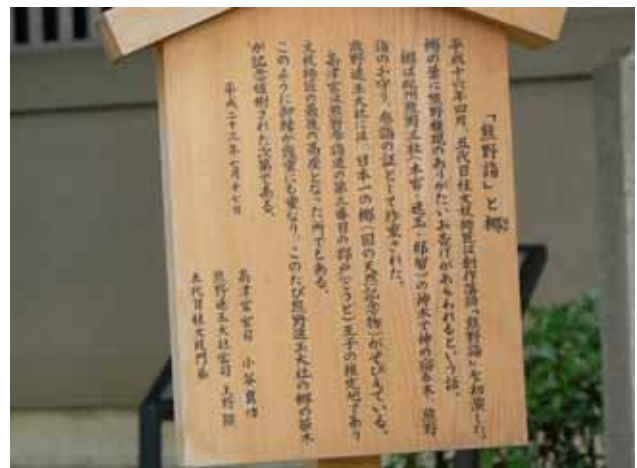 「熊野詣」と梛
平成十六年四月、五代目桂文枝師匠は創作落語「熊野詣」を初演した。
梛の葉に熊野権現のありがたいお告げがあらわれるという話。
梛は紀州熊野三社(本宮・速玉・那智)の神木で神の宿る木 熊野
詣のお守り、参詣の証として珍重された。
熊野速玉大社には、日本一の梛(国の天然記念物)がそびえている。
高津宮は熊野参詣道の第二番目の郡戸(こうと)王子の推定地であり
文枝師匠の最後の高座となった所でもある。
このように御縁が幾重にも重なり、このたび熊野速玉大社の梛の苗木
が記念植樹された次第である。
平成二十三年七月十七日
高津宮宮司 小谷真功
熊野速玉大社宮司 上野顯
五代目桂文枝門下